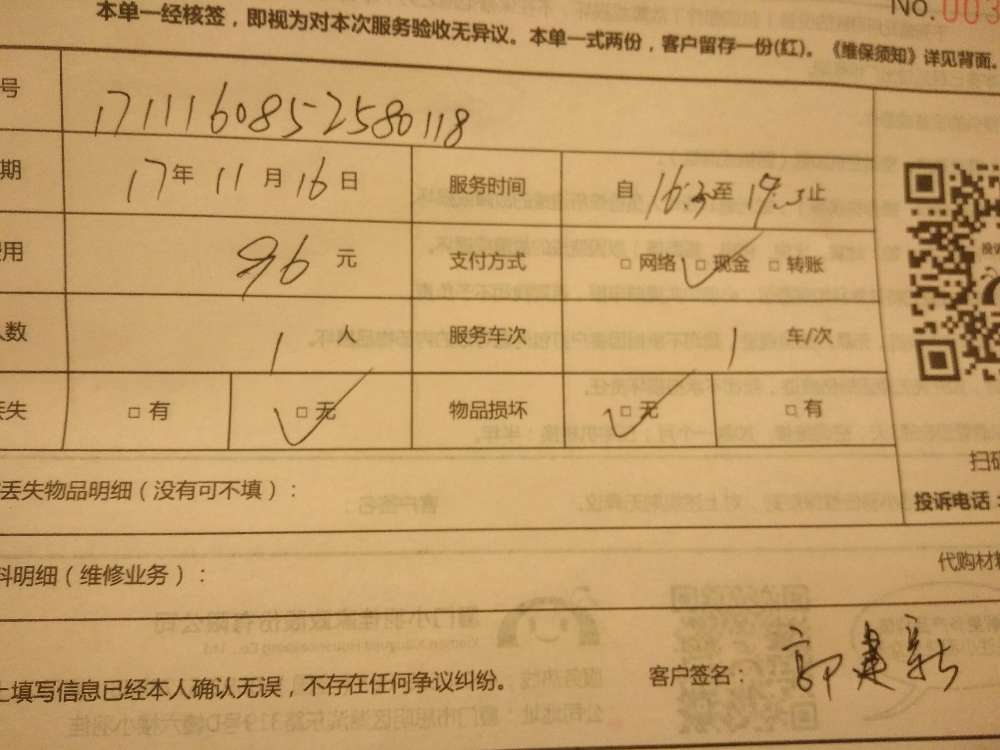 No. 003
本单一经核签，即视为对本次服务验收无异议。本单一式两份，客户留存一份(红)。《维保须知》详见背面。
号 1711160852580118
期 17年 11月 16日 服务时间 自 16:3 至 19: 止
费用 96 元 支付方式 □ 网络 □ 现金 □ 转账
人数 1 服务车次 1 车/次
丢失 □ 有 □ 无 物品损坏 □ 无 □ 有
扫码
丢失物品明细（没有可不填）：
投诉电话：
料明细（维修业务）：
代购材料
上填写信息已经本人确认无误，不存在任何争议纠纷。
客户签名： 郭建新